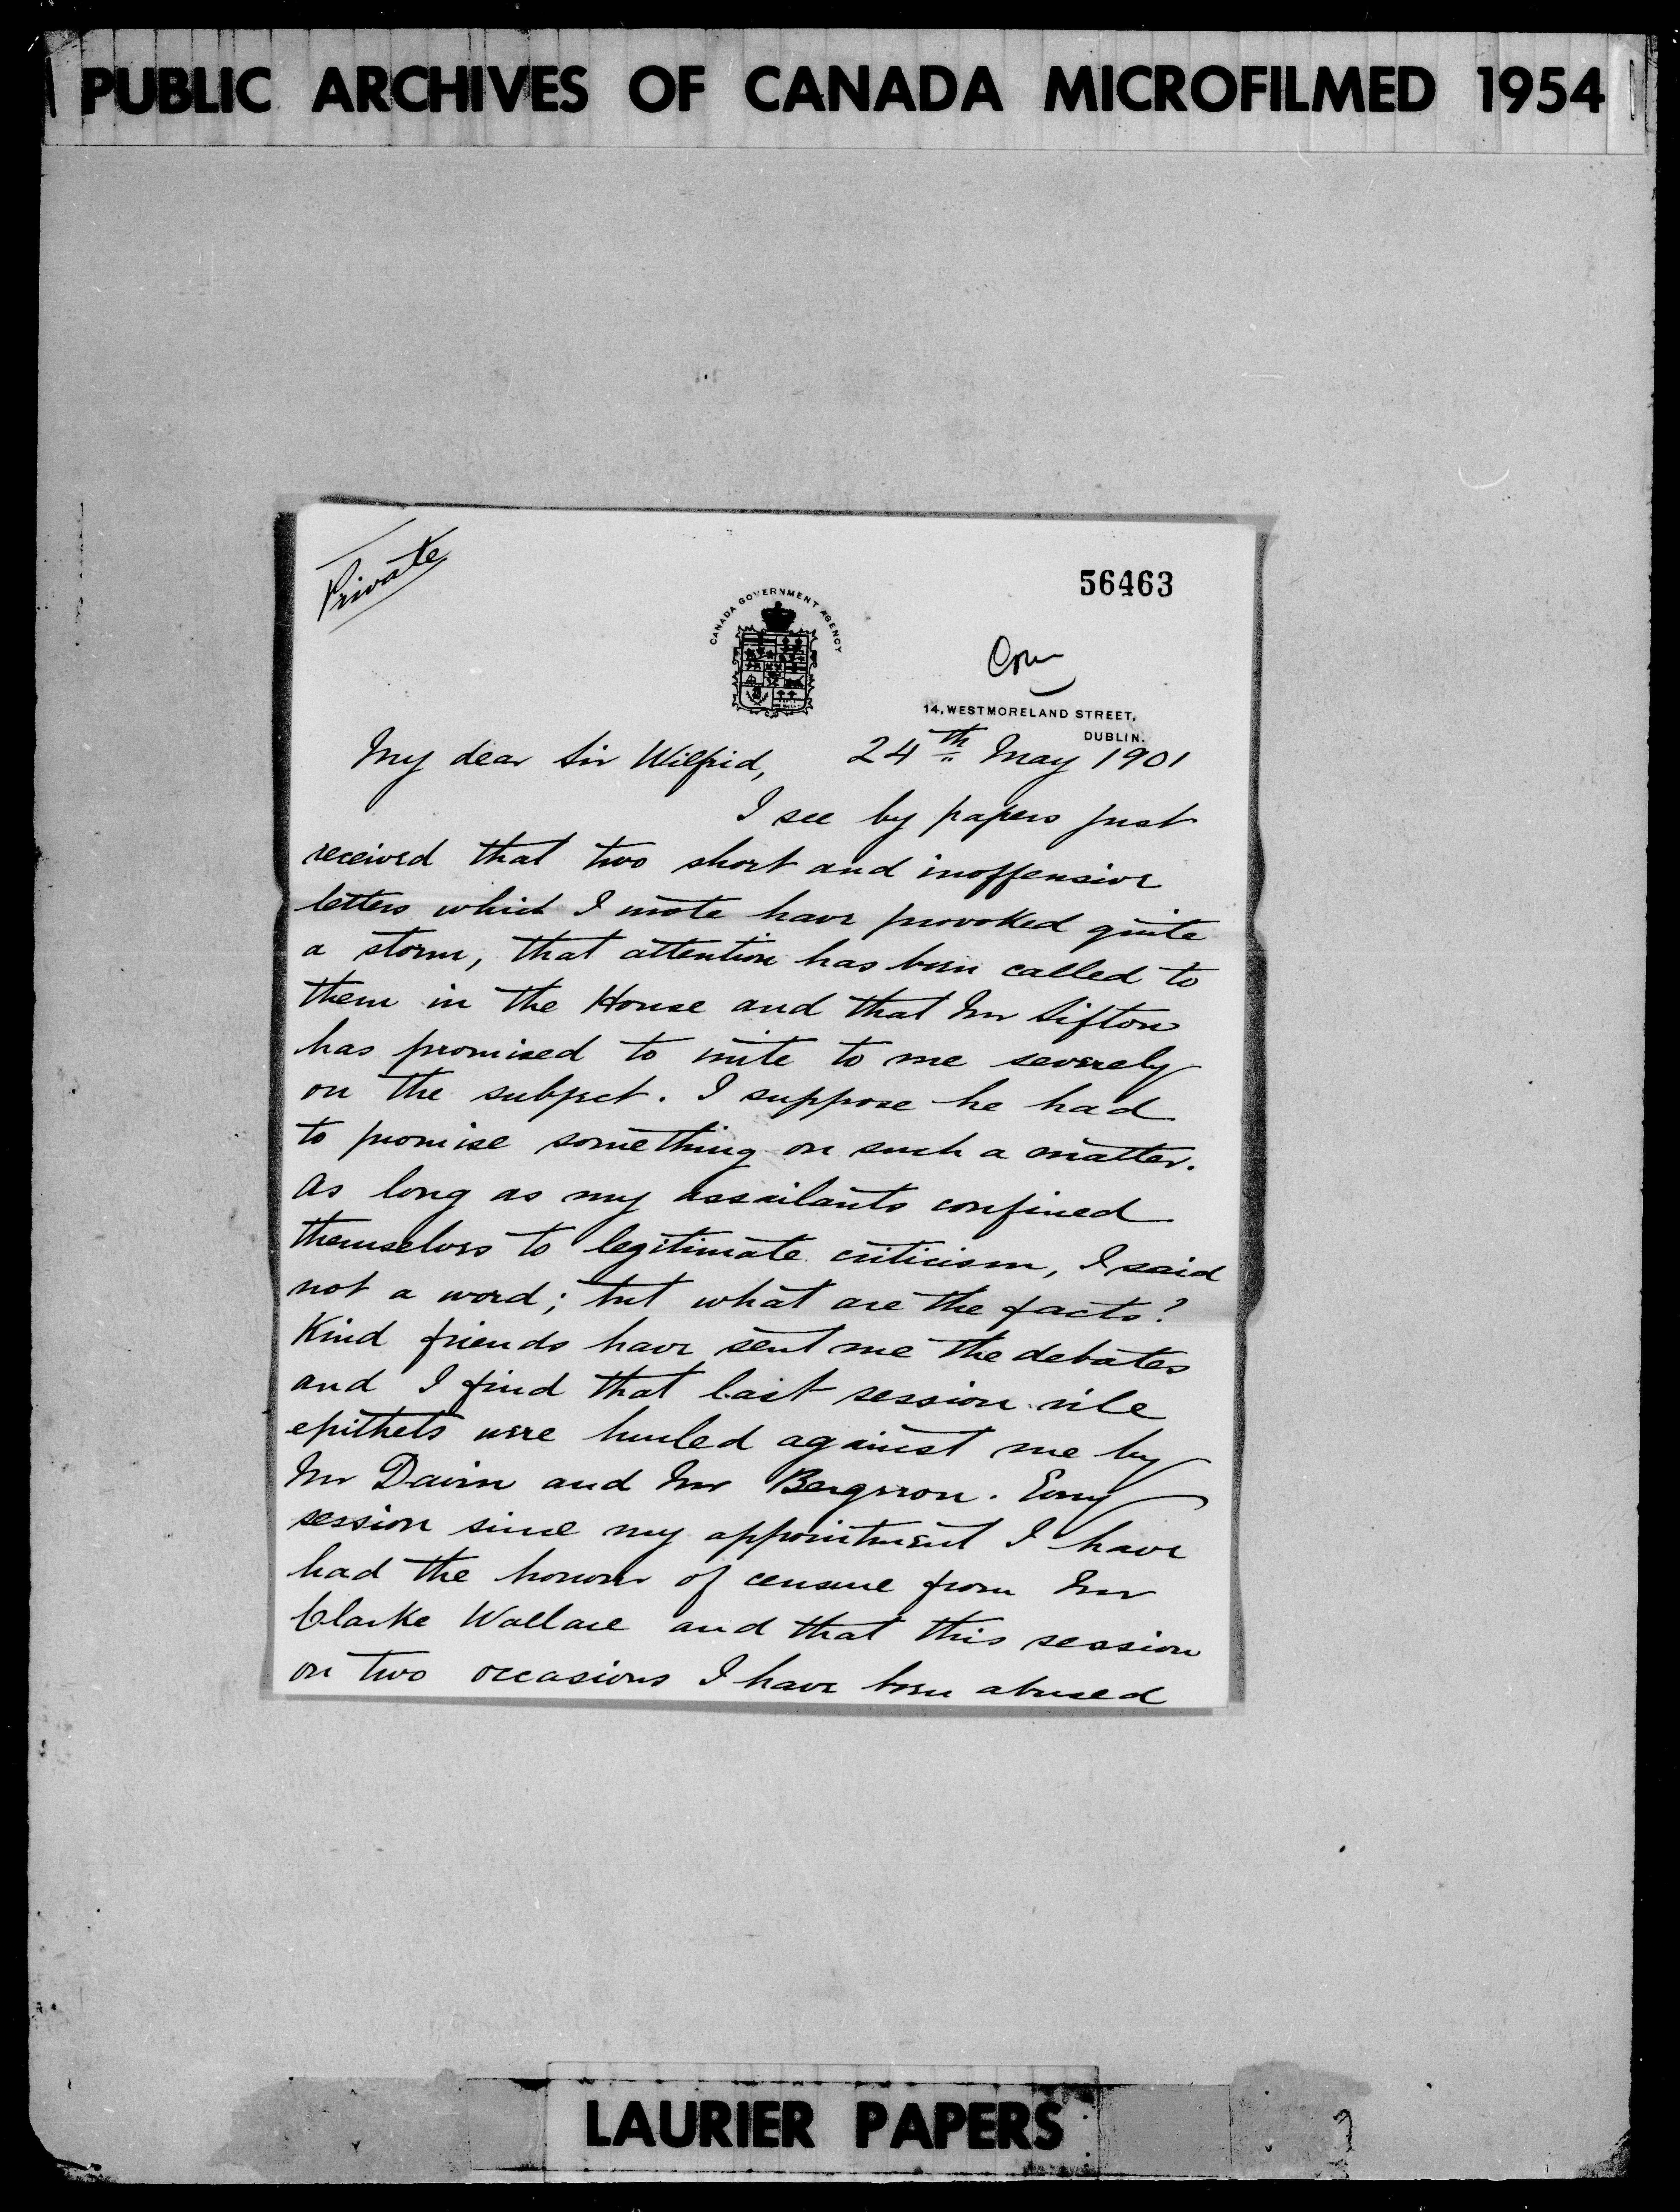 PUBLIC ARCHIVES OF CANADA MICROFILMED 1954
Private
56463
CANADA GOVERNMENT AGENCY
14, WESTMORELAND STREET,
DUBLIN.
24th May 1901
My dear Sir Wilfrid,
I see by papers just
received that two short and inoffensive
letters which I wrote have provoked quite
a storm, that attention has been called to
them in the House and that Mr Sifton
has promised to write to me severely
on the subject. I suppose he had
to promise something on such a matter.
As long as my assailants confined
themselves to legitimate criticism, I said
not a word; but what are the facts?
Kind friends have sent me the debates
and I find that last session vile
epithets were hurled against me by
Mr Davin and Mr Bergeron. Every
session since my appointment I have
had the honour of censure from Mr
Clarke Wallace and that this session
on two occasions I have been abused
LAURIER PAPERS